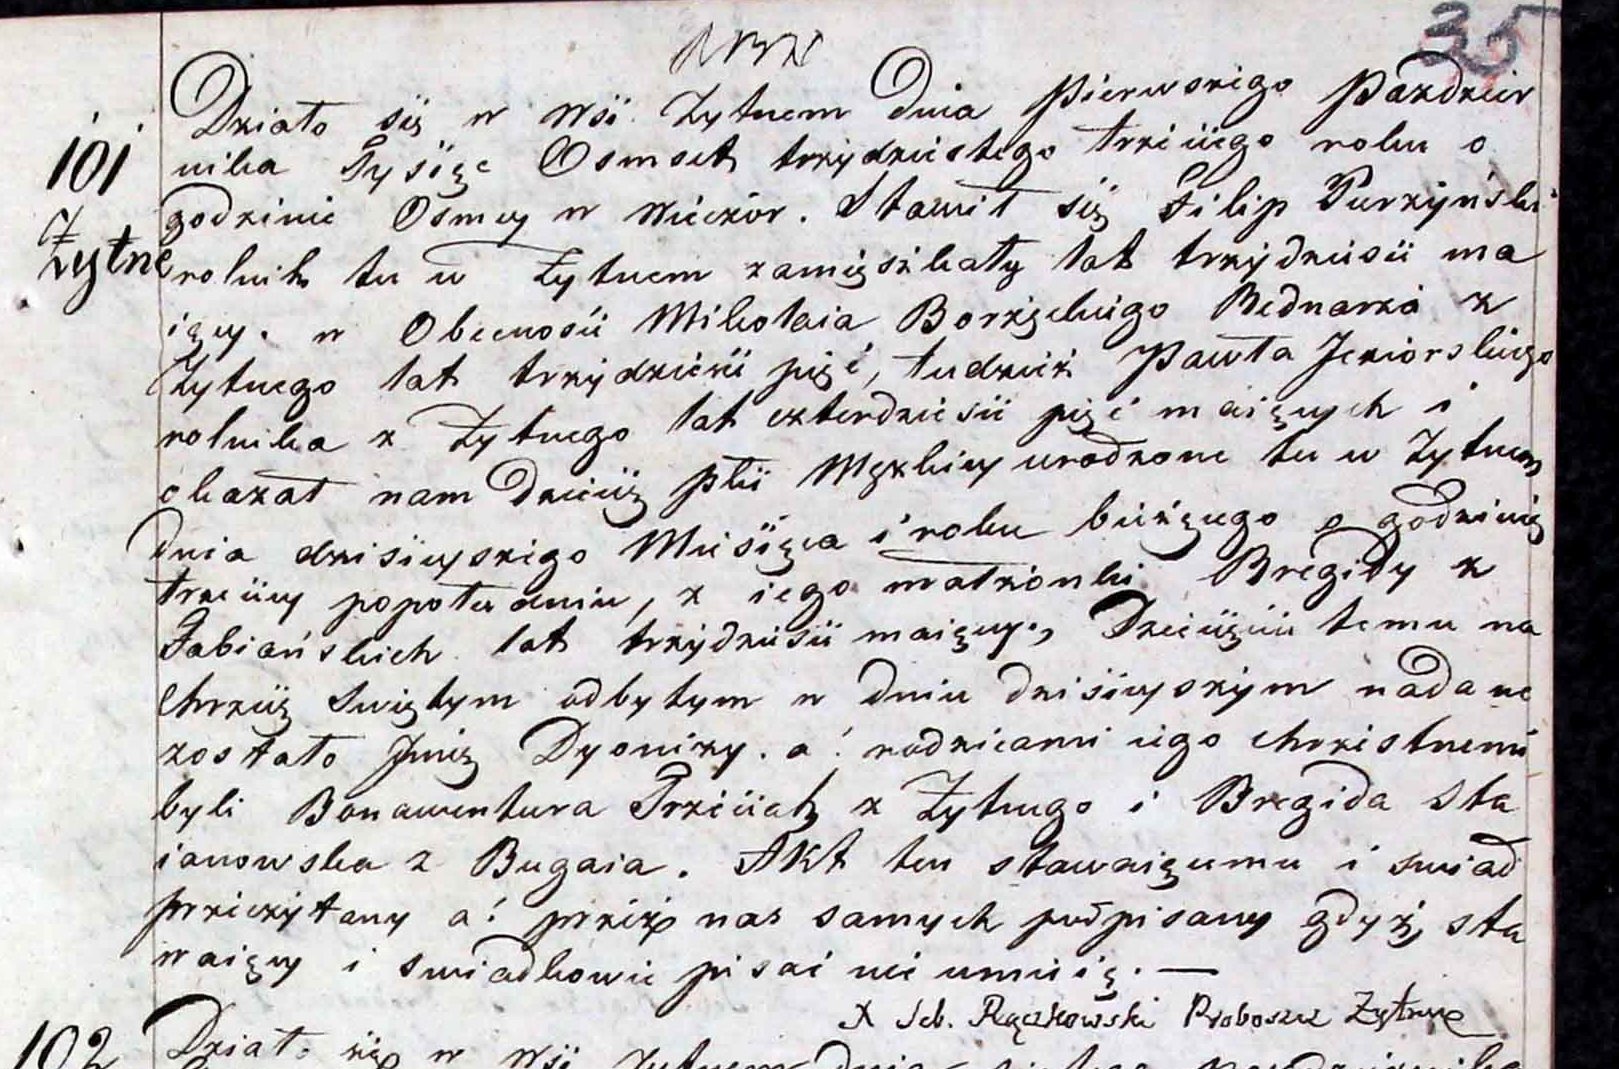 35
101
Żytne
Działo się w wsi Żytnem dnia Pierwszego Pazdzier
nika Tysięc Osmset trzydziestego trzeciego roku o
godzinie Osmey w wieczór. Stawił się Filip Purzyński
rolnik tu w Żytnem zamięszkały lat trzydziesci ma
iący. w Obecnosci Mikołaia Borzęckiego Bednarza z
Żytnego lat trzydziesci pięć, tudzież Pawła Jeziorskiego
rolnika z Żytnego lat czterdziesci pięć maiących i
okazał nam Dziecię płci Męzkiey urodzone tu w Żytnem
dnia dzisieyszego Miesięca i roku bieżącego o godzinie
trzeciey popołudniu, z iego małżonki Bregidy z
Fabiańskich lat trzydziesci maiącey., Dziecięciu temu na
Chrzcie Swiętym odbytym w dniu dzisieyszym nadane
zostało Jmię Dyonizy. a: rodzicami iego chrzestnemi
byli Bonawentura Trzeciak z Żytnego i Bregida Sta
ianowska z Bugaia. Akt ten stawaiącemu i swiad
przeczytany a: przez nas samych podpisany gdyż, sta
waiący i swiadkowie pisać nie umieią. —
X Seb. Rączkowski Proboszcz Żytna
102
Działo się w wsi Żytnem dnia